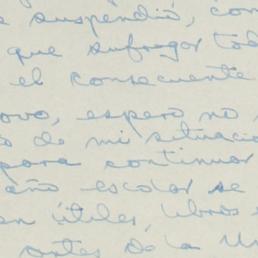 e suspendió, com
que sufragar tod
el consecuente
ovo, espero no
o de mi situacio
para continuar
año escolar se
en útiles, libros
antes de la Un